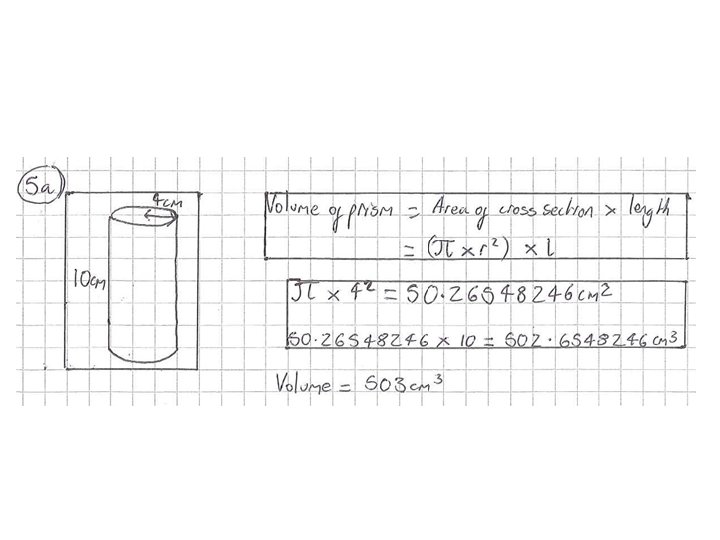 5a
4cm
10cm
Volume of prism = Area of cross section × length
= (π × r²) × l
π × 4² = 50.26548246cm²
50.26548246 × 10 = 502.6548246cm³
Volume = 503cm³